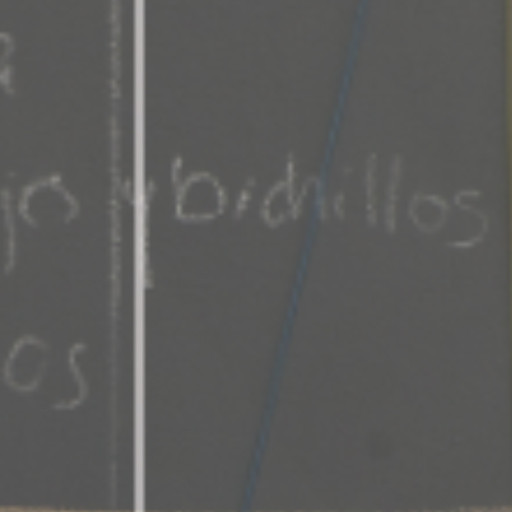 jo y bichillos
os